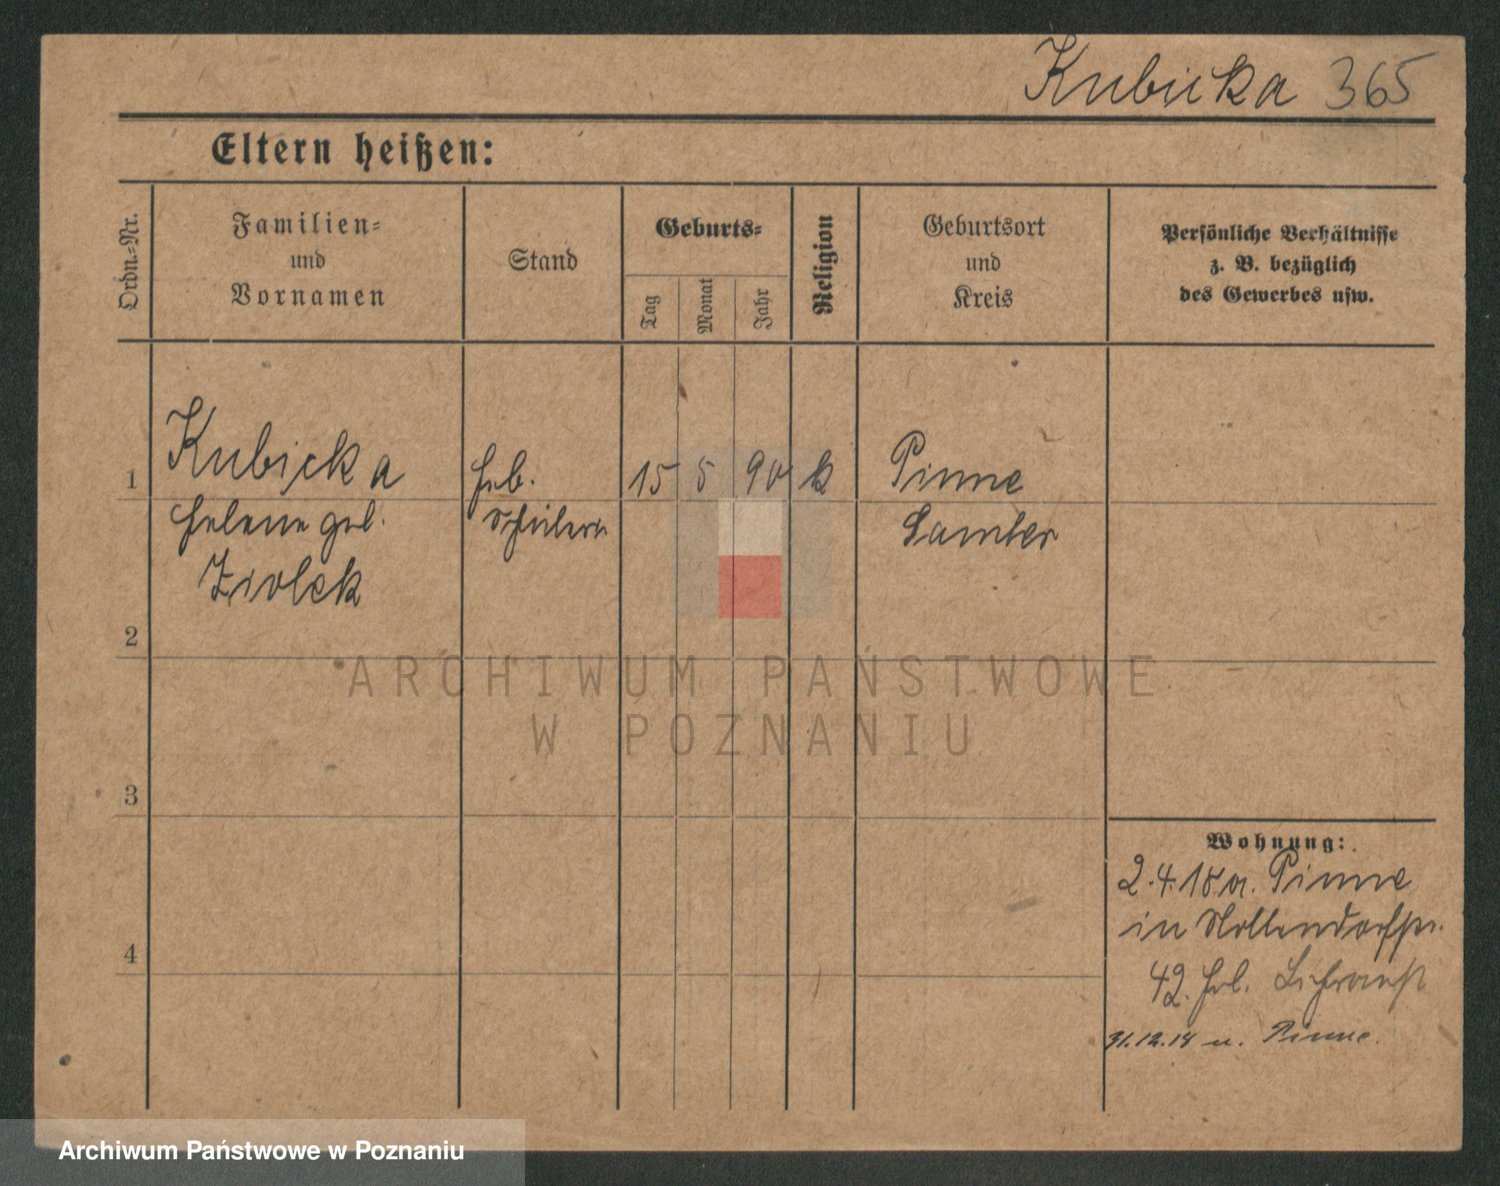 Kubicka 365
Eltern heißen:
Ordn.-Nr.
Familien-
und
Vornamen
Stand
Geburts-
Tag
Monat
Jahr
Religion
Geburtsort
und
Kreis
Persönliche Verhältnisse
z. B. bezüglich
des Gewerbes usw.
1 Kubicka Heb. 15 5 90 k Pinne
Helene geb. Schülerin Samter
Ziolek
2
3
4
Wohnung:
2.4.18 a. Pinne
in Nollendorfstr.
42. Hel.
31.12.18 n. Pinne.
ARCHIWUM PAŃSTWOWE
W POZNANIU
Archiwum Państwowe w Poznaniu